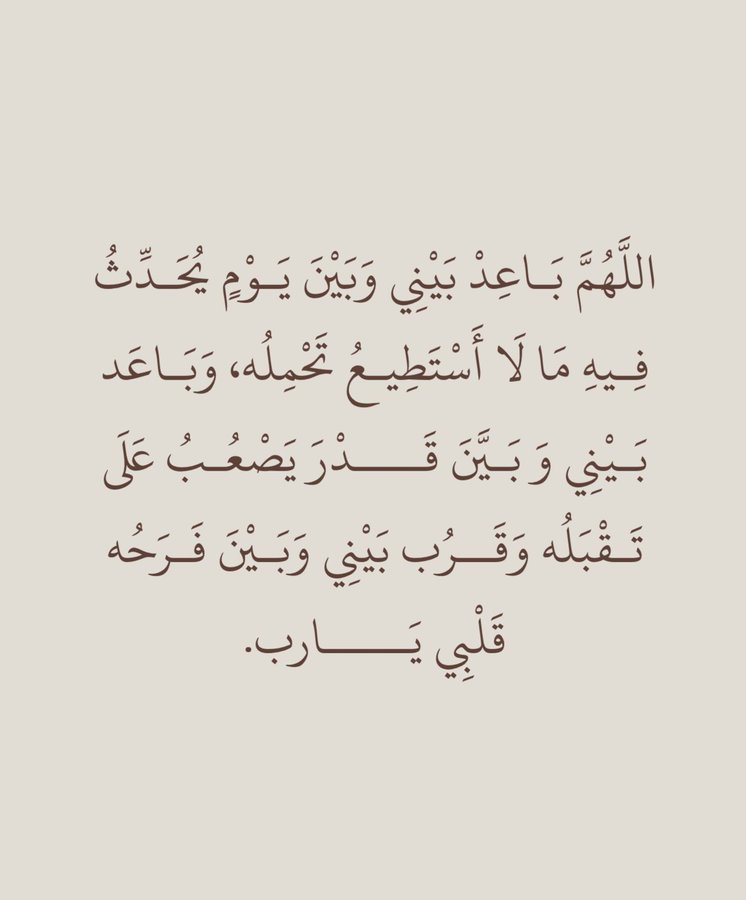 اللَّهُمَّ بَـاعِدْ بَيْنِي وَبَيْنَ يَـوْمٍ يُحَـدِّثُ
فِـيهِ مَا لَا أَسْتَطِيـعُ تَحْمِلُه، وَبَـاعَد
بَـيْنِي وَ بَـيَّنَ قَــــدْرَ يَصْعُـبُ عَلَى
تَـقْبَلُه وَقَــرُب بَيْنِي وَبَـيْنَ فَـرَحُه
قَلْبِي يَـــــارب.